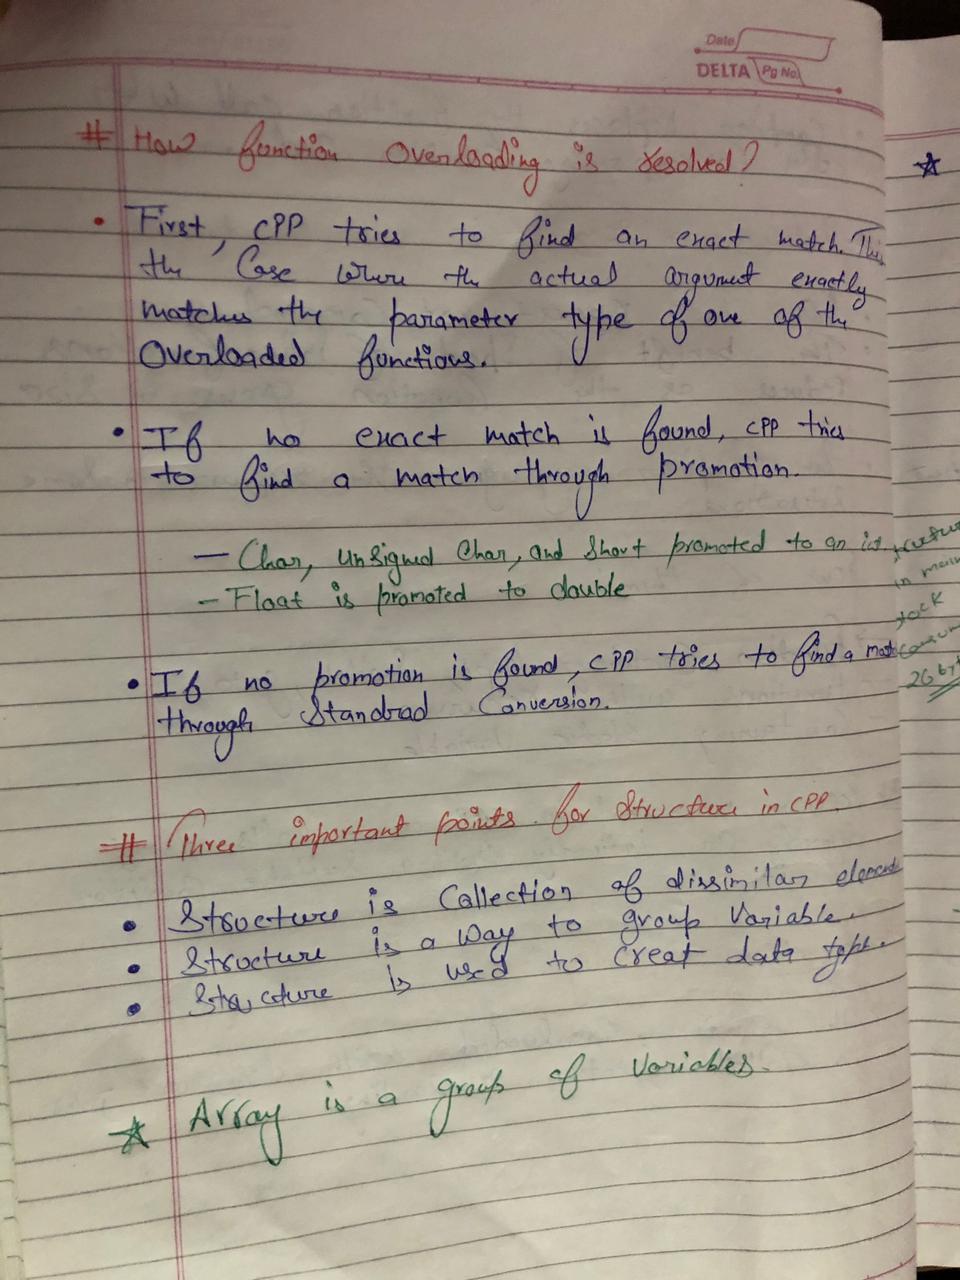 Date
DELTA Pg No.
# How function Overloading is resolved?
• First, CPP tries to find an exact match. This
the Case where the actual argument exactly
matches the parameter type of one of the
Overloaded functions.
• If no exact match is found, CPP tries
to find a match through promotion.
— Char, Unsigned Char, and Short promoted to an int
— Float is promoted to double
• If no promotion is found, CPP tries to find a mat
through Standrad Conversion.
# Three important points for Structure in CPP.
• Structure is Collection of dissimilar elements
• Structure is a way to group Variable.
• Structure is used to creat data type.
☆ Array is a group of Variables.
☆
in main
26 by